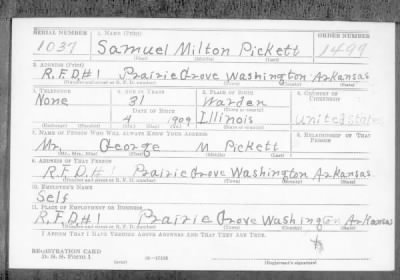 SERIAL NUMBER 1. NAME (Print) ORDER NUMBER
1037 Samuel Milton Pickett 1499
(First) (Middle) (Last)
2. ADDRESS (Print)
R.F.D.#1 Prairie Grove Washington Arkansas
(Number and street or R. F. D. number) (Town) (County) (State)
3. TELEPHONE 4. AGE IN YEARS 5. PLACE OF BIRTH 6. COUNTRY OF CITIZENSHIP
None 31 Warden
DATE OF BIRTH
4 1909 Illinois United States
(Exchange) (No.) (Mo.) (Day) (Yr.) (State or country)
7. NAME OF PERSON WHO WILL ALWAYS KNOW YOUR ADDRESS 8. RELATIONSHIP OF THAT PERSON
Mr. George M Pickett
(Mr., Mrs., Miss) (First) (Middle) (Last)
9. ADDRESS OF THAT PERSON
R.F.D.#1 Prairie Grove Washington Arkansas
(Number and street or R. F. D. number) (Town) (County) (State)
10. EMPLOYER'S NAME
Self
11. PLACE OF EMPLOYMENT OR BUSINESS
R.F.D.#1 Prairie Grove Washington Arkansas
(Number and street or R. F. D. number) (Town) (County) (State)
I AFFIRM THAT I HAVE VERIFIED ABOVE ANSWERS AND THAT THEY ARE TRUE.
REGISTRATION CARD
D. S. S. Form 1 (over) (Registrant's signature)